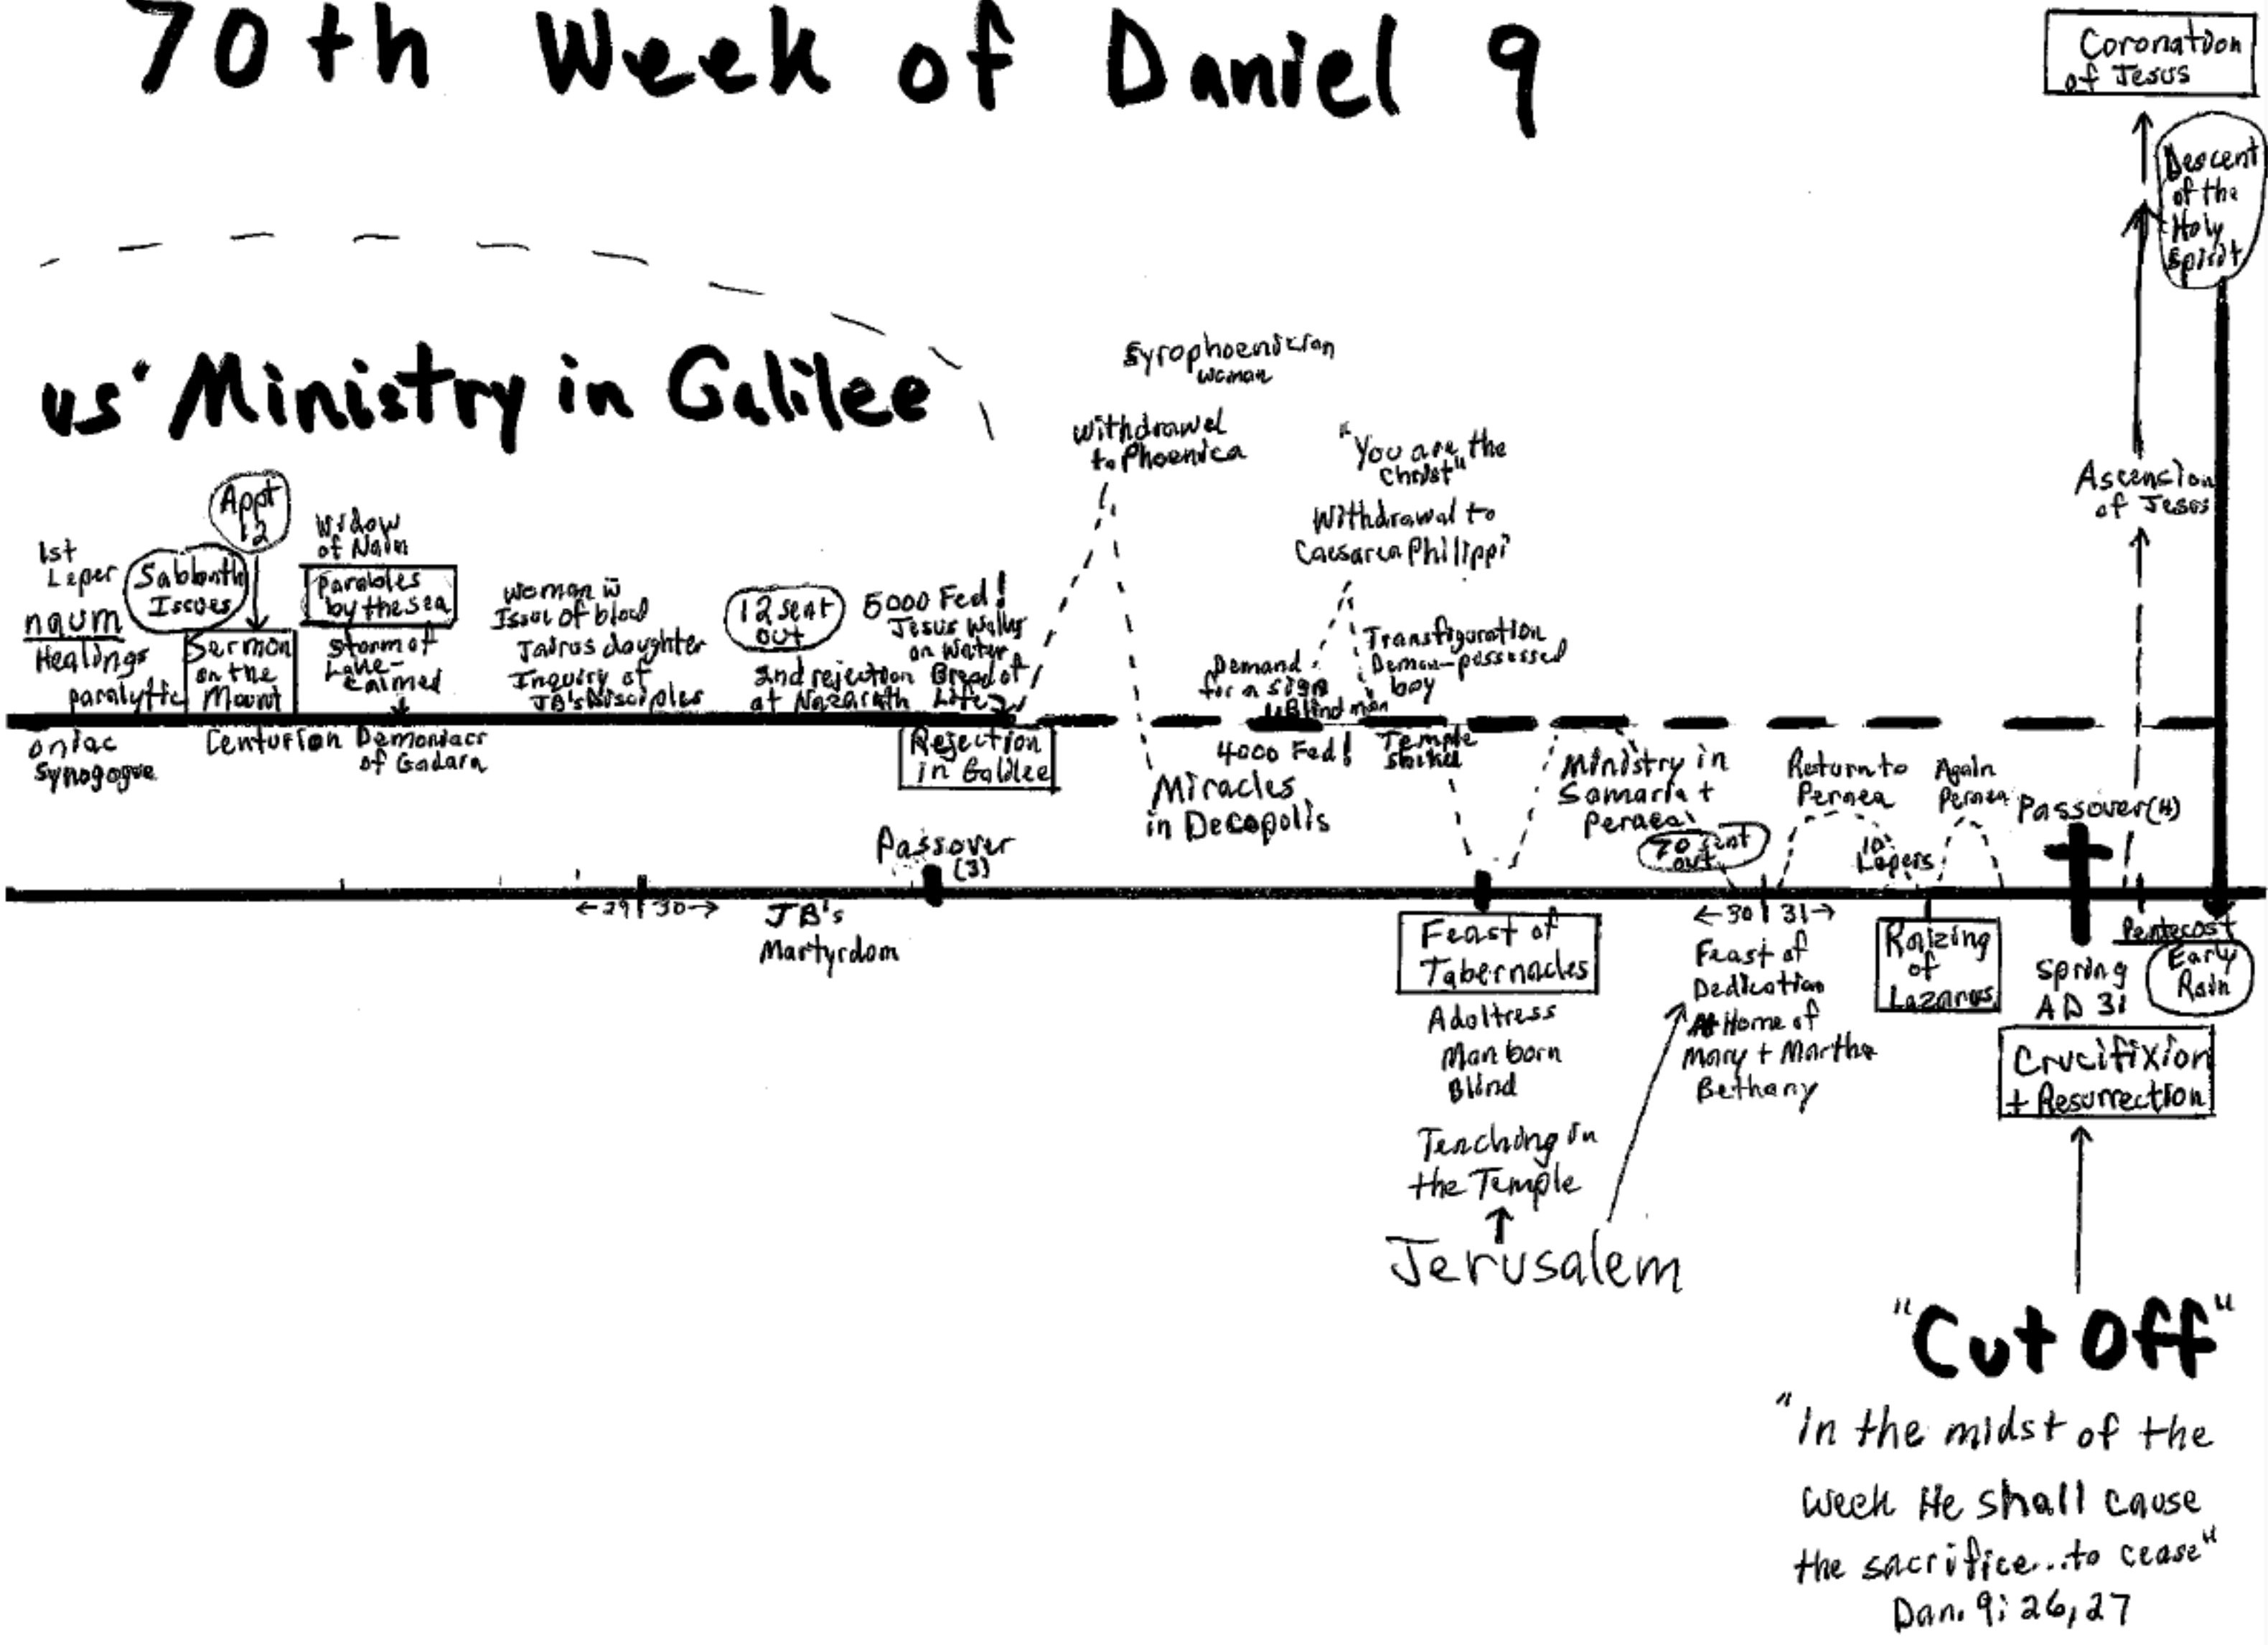 70th Week of Daniel 9
Coronation
of Jesus
Descent
of the
Holy
Spirit
us' Ministry in Galilee
Syrophoenician
woman
Withdrawel
to Phoenica
"You are the
Christ"
Withdrawal to
Caesarea Philippi
Ascension
of Jesus
Appt
12
1st
Leper
Sabbath
Issues
Widow
of Nain
Parables
by the sea
naum
Healings
paralytic
Sermon
on the
Mount
Storm of
Lake-
calmed
Woman w̄
Issue of blood
Jairus daughter
Inquiry of
JB's Disciples
12 sent
out
2nd rejection
at Nazareth
5000 Fed!
Jesus Walks
on Water
Bread of
Life
Demand
for a sign
Blind man
Transfiguration
Demon-possessed
boy
oniac
Synogogue
Centurion
Demoniacs
of Gadara
Rejection
in Galilee
Miracles
in Decapolis
4000 Fed!
Temple
Ministry in
Samaria +
Peraea
70 sent
out
Return to
Peraea
10
Lepers
Again
Peraea
Passover (4)
Passover
(3)
←29 | 30→
JB's
Martyrdom
Feast of
Tabernacles
Adoltress
Man born
Blind
Teaching in
the Temple
Jerusalem
←30 | 31→
Feast of
Dedication
At Home of
Mary + Martha
Bethany
Raizing
of
Lazarus
Spring
AD 31
Pentecost
Early
Rain
Crucifixion
+ Resurrection
"Cut Off"
"In the midst of the
week He shall cause
the sacrifice...to cease"
Dan. 9; 26,27